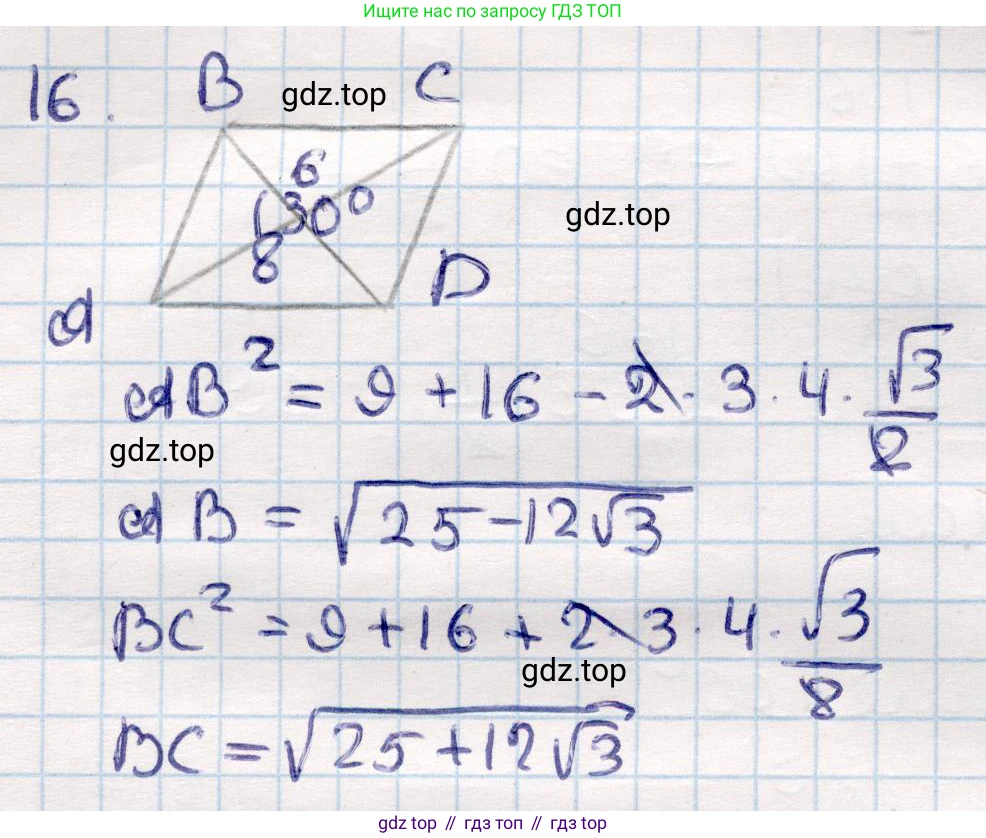 Ищите нас по запросу ГДЗ ТОП
16. B C
gdz.top
6
30°
gdz.top
8
D
A
AB² = 9 + 16 - 2 · 3 · 4 · √3/2
gdz.top
AB = √(25 - 12√3)
BC² = 9 + 16 + 2 · 3 · 4 · √3/2
gdz.top
BC = √(25 + 12√3)
gdz top // гдз топ // gdz top